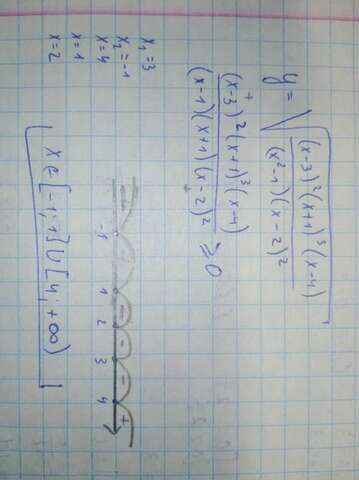 y = √((x-3)²(x+1)³(x-4) / (x²-1)(x-2)²)
(x-3)²(x+1)³(x-4) / (x-1)(x+1)(x-2)² ≥ 0
x₁=3
x₂=-1
x=4
x=1
x=2
- - - +
-1 1 2 3 4
x∈[-1;1]∪[4;+∞)